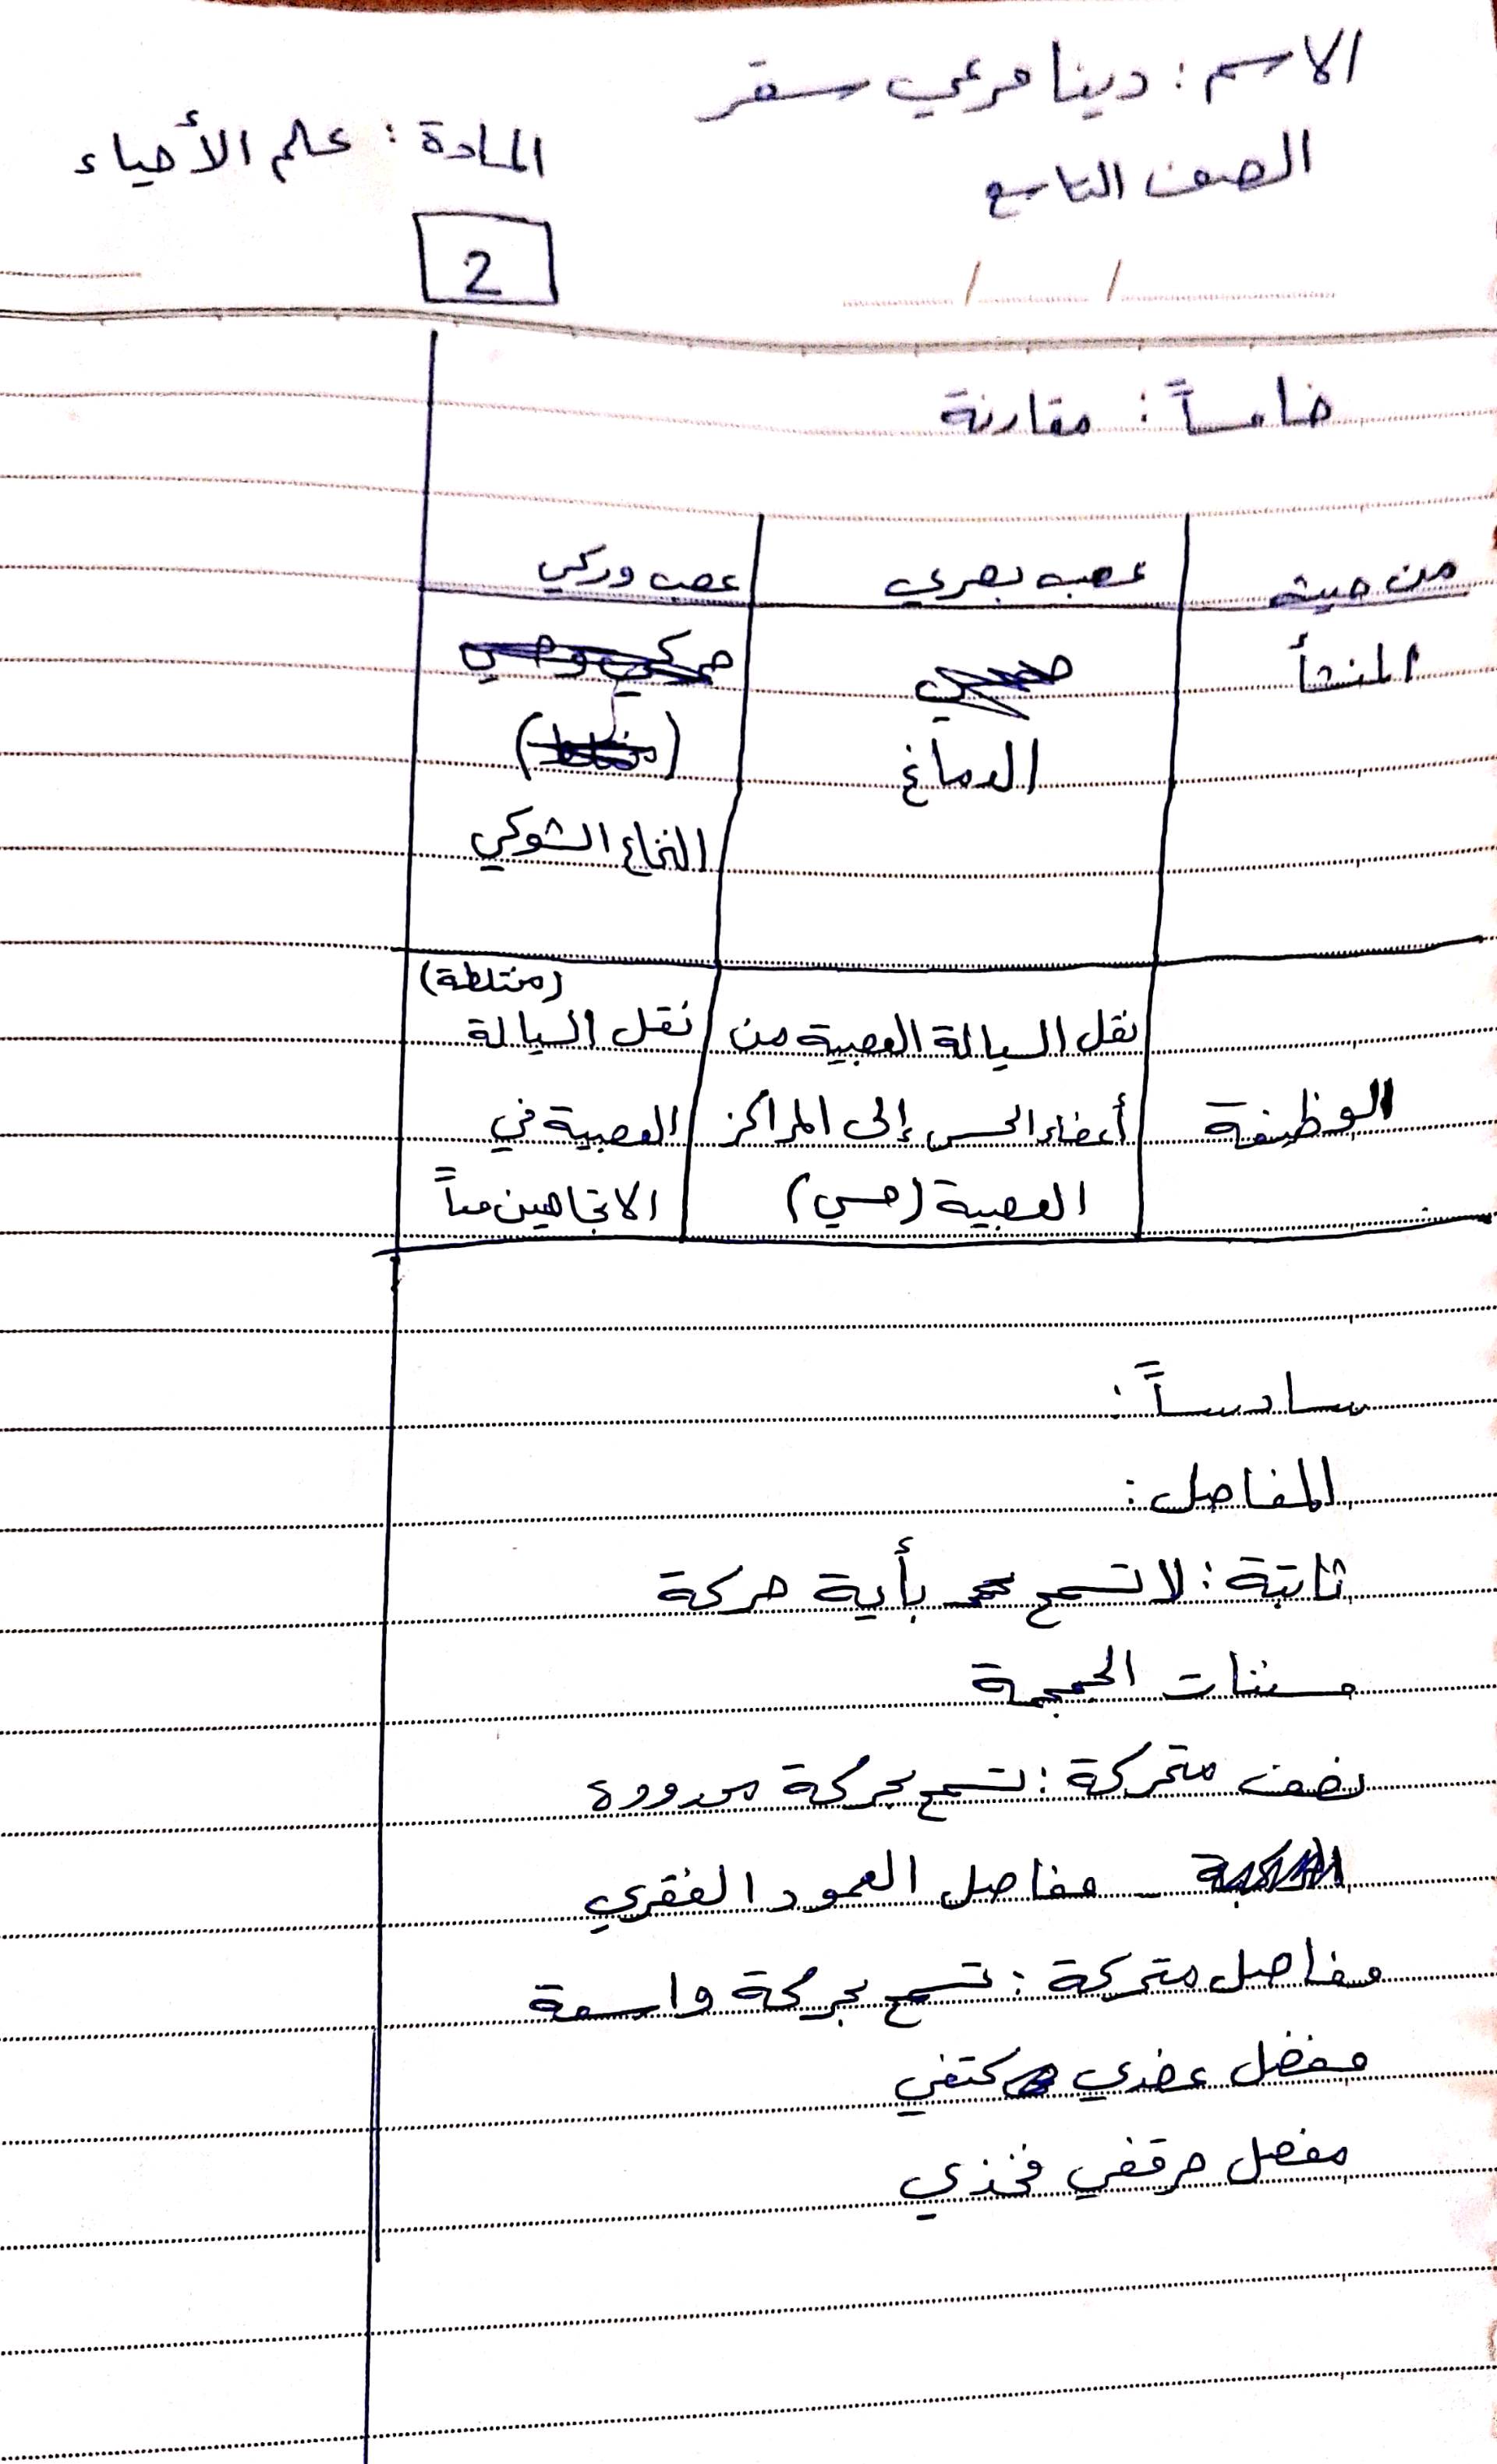 الاسم : دينا مرعي سقر
المادة : علم الأحياء
الصف التاسع
2
/ /
خامساً : مقارنة
من حيث عصب بصري عصب وركي
المنشأ
الدماغ
النخاع الشوكي
(مختلطة)
نقل السيالة العصبية من نقل السيالة
الوظيفة أعضاء الحس إلى المراكز العصبية في
العصبية (حسي) الاتجاهين معاً
سادساً :
المفاصل :
ثابتة : لا تسمح بأية حركة
مسننات الجمجمة
نصف متحركة : تسمح بحركة محدودة
- مفاصل العمود الفقري
مفاصل متحركة : تسمح بحركة واسعة
مفضل عضدي كتفي
مفصل حرقفي فخذي